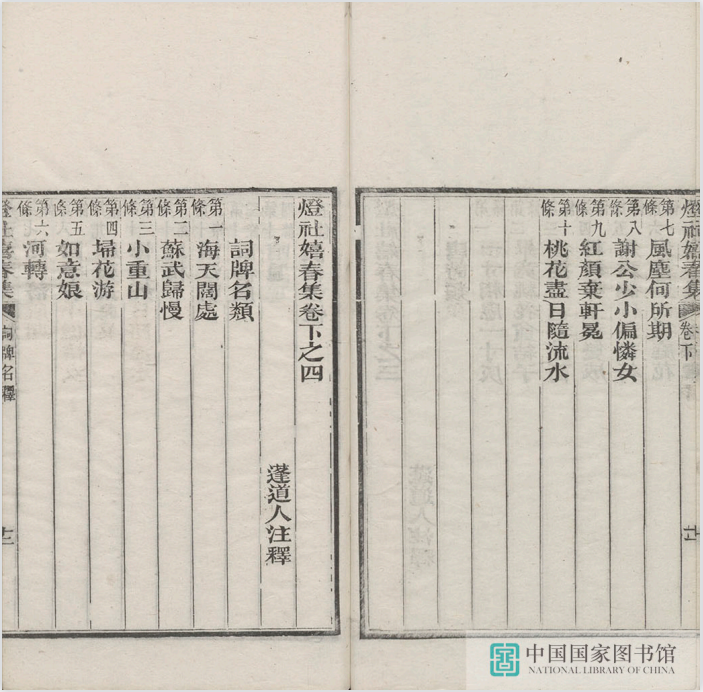 燈社嬉春集 卷下
第七條 風塵何所期
第八條 謝公少小偏憐女
第九條 紅顏棄軒冕
第十條 桃花盡日隨流水
燈社嬉春集卷下之四
蘧道人注釋
詞牌名類
第一條 海天闊處
第二條 蘇武歸慢
第三條 小重山
第四條 埽花游
第五條 如意娘
第六條 河轉
燈社嬉春集 詞牌名釋
中国国家图书馆
NATIONAL LIBRARY OF CHINA